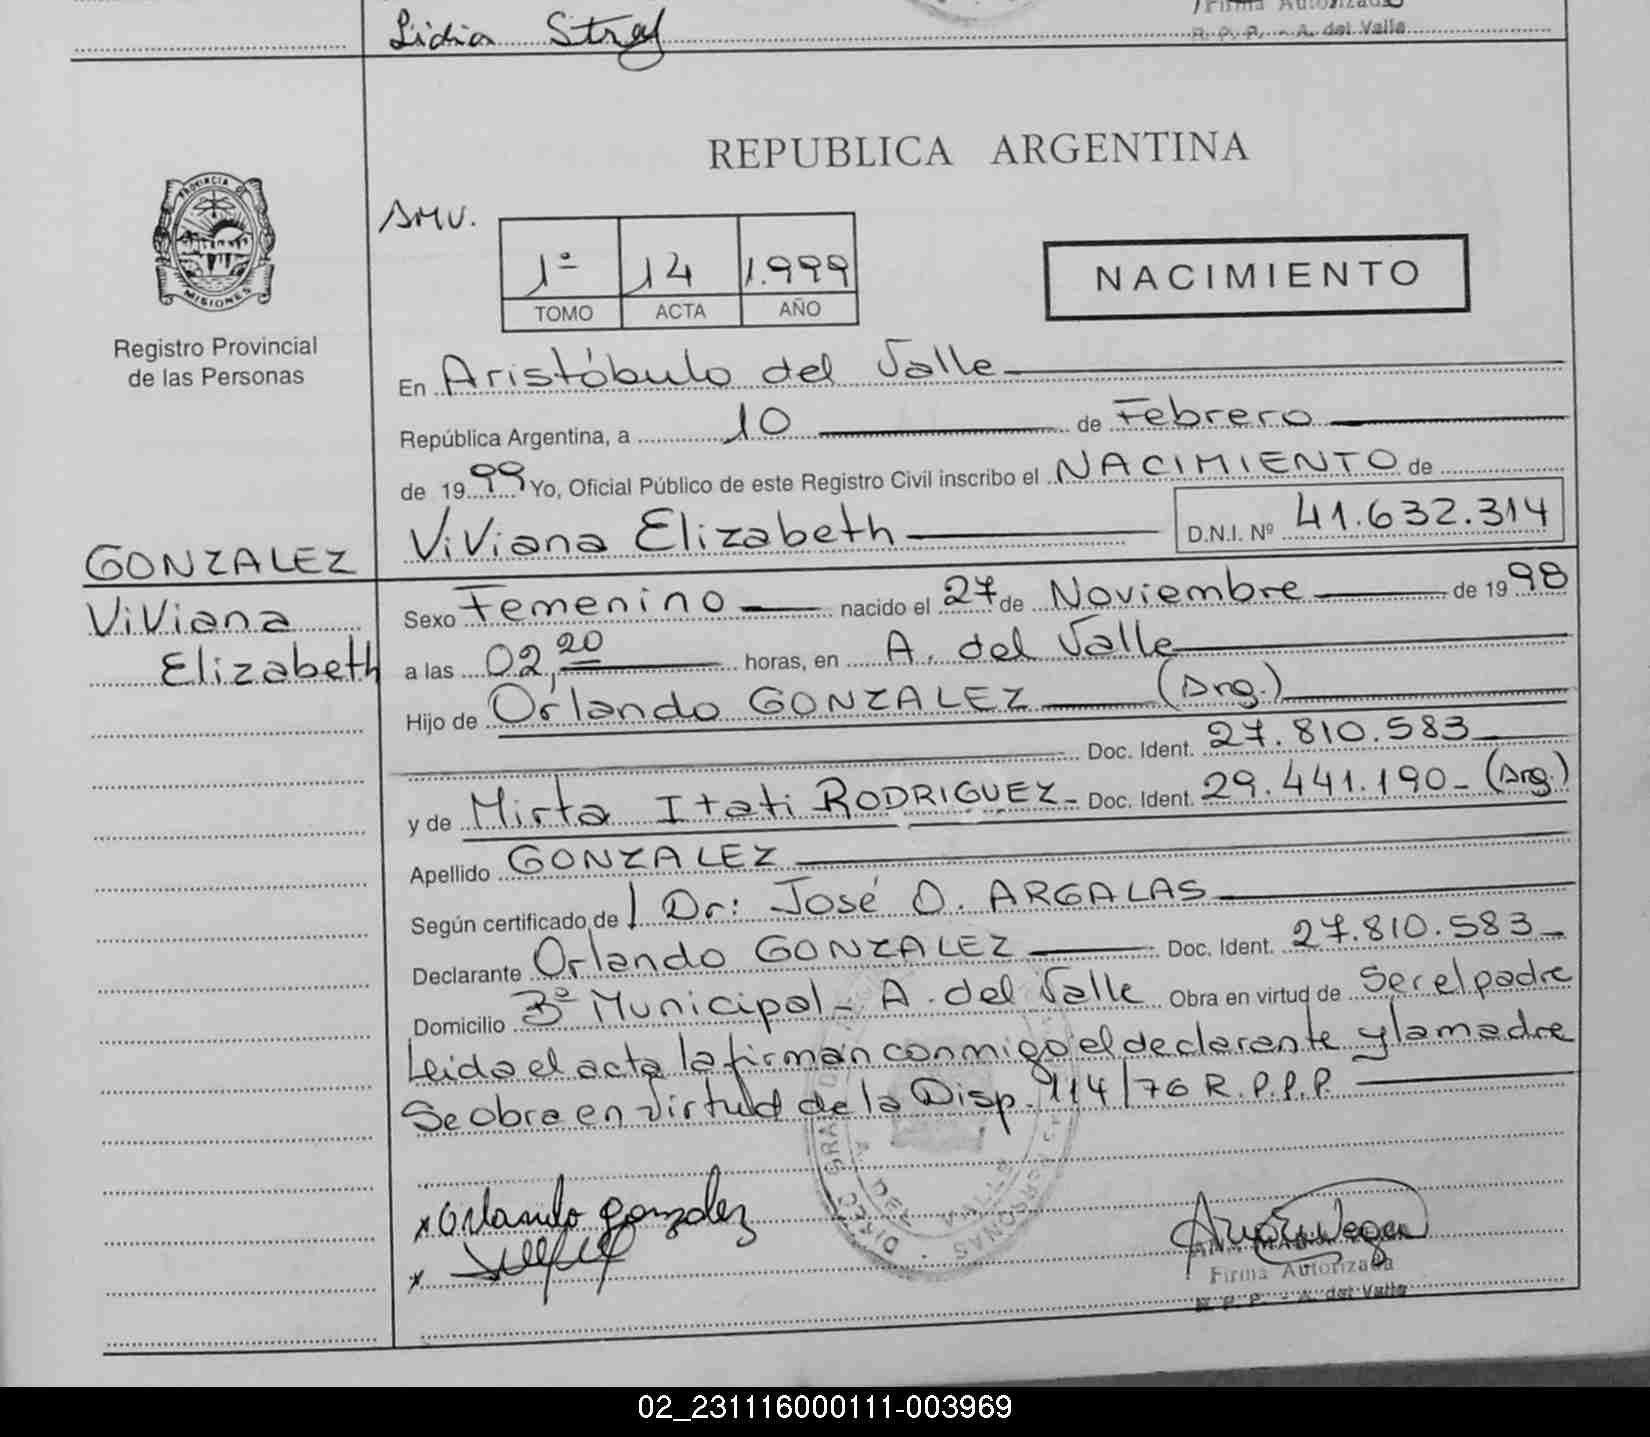 Lidia
Firma Autorizada
R. P. P. - A. del Valle
REPUBLICA ARGENTINA
PROVINCIA DE
MISIONES
Registro Provincial
de las Personas
AMV.
1º 14 1.999
TOMO ACTA AÑO
NACIMIENTO
En Aristóbulo del Valle
República Argentina, a 10 de Febrero
de 1999 Yo, Oficial Público de este Registro Civil inscribo el NACIMIENTO de
Viviana Elizabeth D.N.I. Nº 41.632.314
GONZALEZ
Viviana
Elizabeth
Sexo Femenino nacido el 27 de Noviembre de 1998
a las 02,20 horas, en A. del Valle
Hijo de Orlando GONZALEZ (Arg.)
Doc. Ident. 27.810.583
y de Mirta Itati RODRIGUEZ- Doc. Ident. 29.441.190- (Arg.)
Apellido GONZALEZ
Según certificado de Dr: José O. ARGALAS
Declarante Orlando GONZALEZ Doc. Ident. 27.810.583
Domicilio Bº Municipal- A. del Valle Obra en virtud de Ser el padre
Leida el acta la firman conmigo el declarante y la madre
Se obra en virtud de la Disp. 114/76 R.P.P.P.
x Orlando gonzalez
x
Firma Autorizada
R. P. P. - A. del Valle
02_231116000111-003969